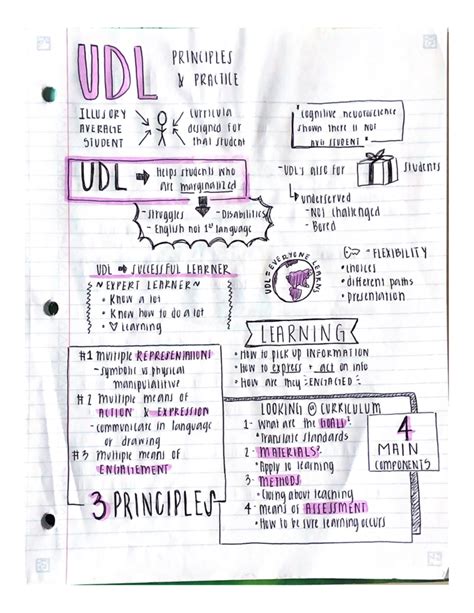 UDL PRINCIPLES
& PRACTICE
ILLUSORY
AVERAGE
STUDENT
CURRICULA
designed for
that student
"cognitive neuroscience
shown there is not
AVG STUDENT"
UDL → Helps students who
are marginalized
- Struggles - Disabilities
- English not 1st language
- UDL's also for students
↳ underserved
- NOT challenged
- Bored
UDL → SUCCESSFUL LEARNER
~ EXPERT LEARNER ~
• Know a lot
• Know how to do a lot
• ♡ Learning
UDL = EVERYONE LEARNS
= FLEXIBILITY
• choices
• different paths
• presentation
LEARNING
• How to PICK UP INFORMATION
• How to express + act on info
• How are they ENGAGED
#1 Multiple REPRESENTATIONS
- symbolic vs physical
manipulative
#2 Multiple means of
ACTION & EXPRESSION
- communicate in language
or drawing
#3 Multiple means of
ENGAGEMENT
3 PRINCIPLES
LOOKING @ CURRICULUM
1- What are the GOALS?
• Translate standards
2- MATERIALS?
• Apply to learning
3- METHODS
• Going about teaching
4- means of ASSESSMENT
• How to be sure learning occurs
4
MAIN
COMPONENTS